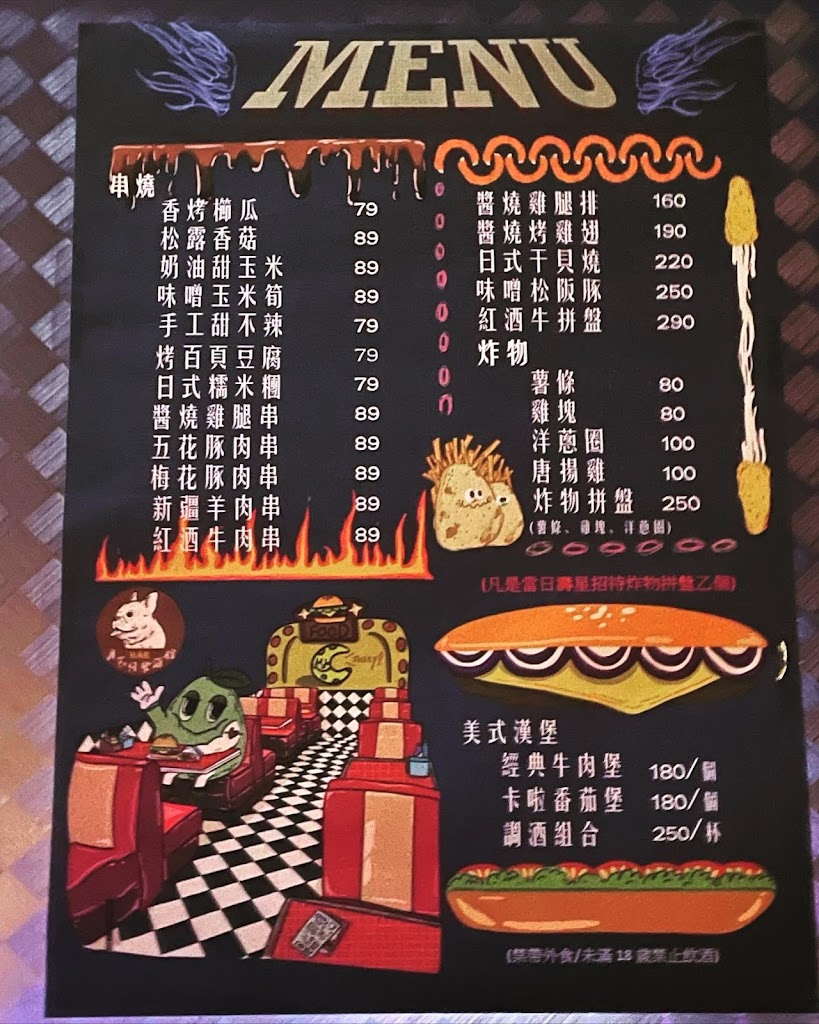 MENU
串燒
香烤櫛瓜 79
松露香菇 89
奶油甜玉米 89
味噌玉米筍 89
手工甜不辣 79
烤百頁豆腐 79
日式糯米糰 79
醬燒雞腿串 89
五花豚肉串 89
梅花豚肉串 89
新疆羊肉串 89
紅酒牛肉串 89
醬燒雞腿排 160
醬燒烤雞翅 190
日式干貝燒 220
味噌松阪豚 250
紅酒牛拼盤 290
炸物
薯條 80
雞塊 80
洋蔥圈 100
唐揚雞 100
炸物拼盤 250
(薯條、雞塊、洋蔥圈)
(凡是當日壽星招待炸物拼盤乙個)
FOOD
美式漢堡
經典牛肉堡 180/個
卡啦番茄堡 180/個
調酒組合 250/杯
(禁帶外食/未滿 18 歲禁止飲酒)